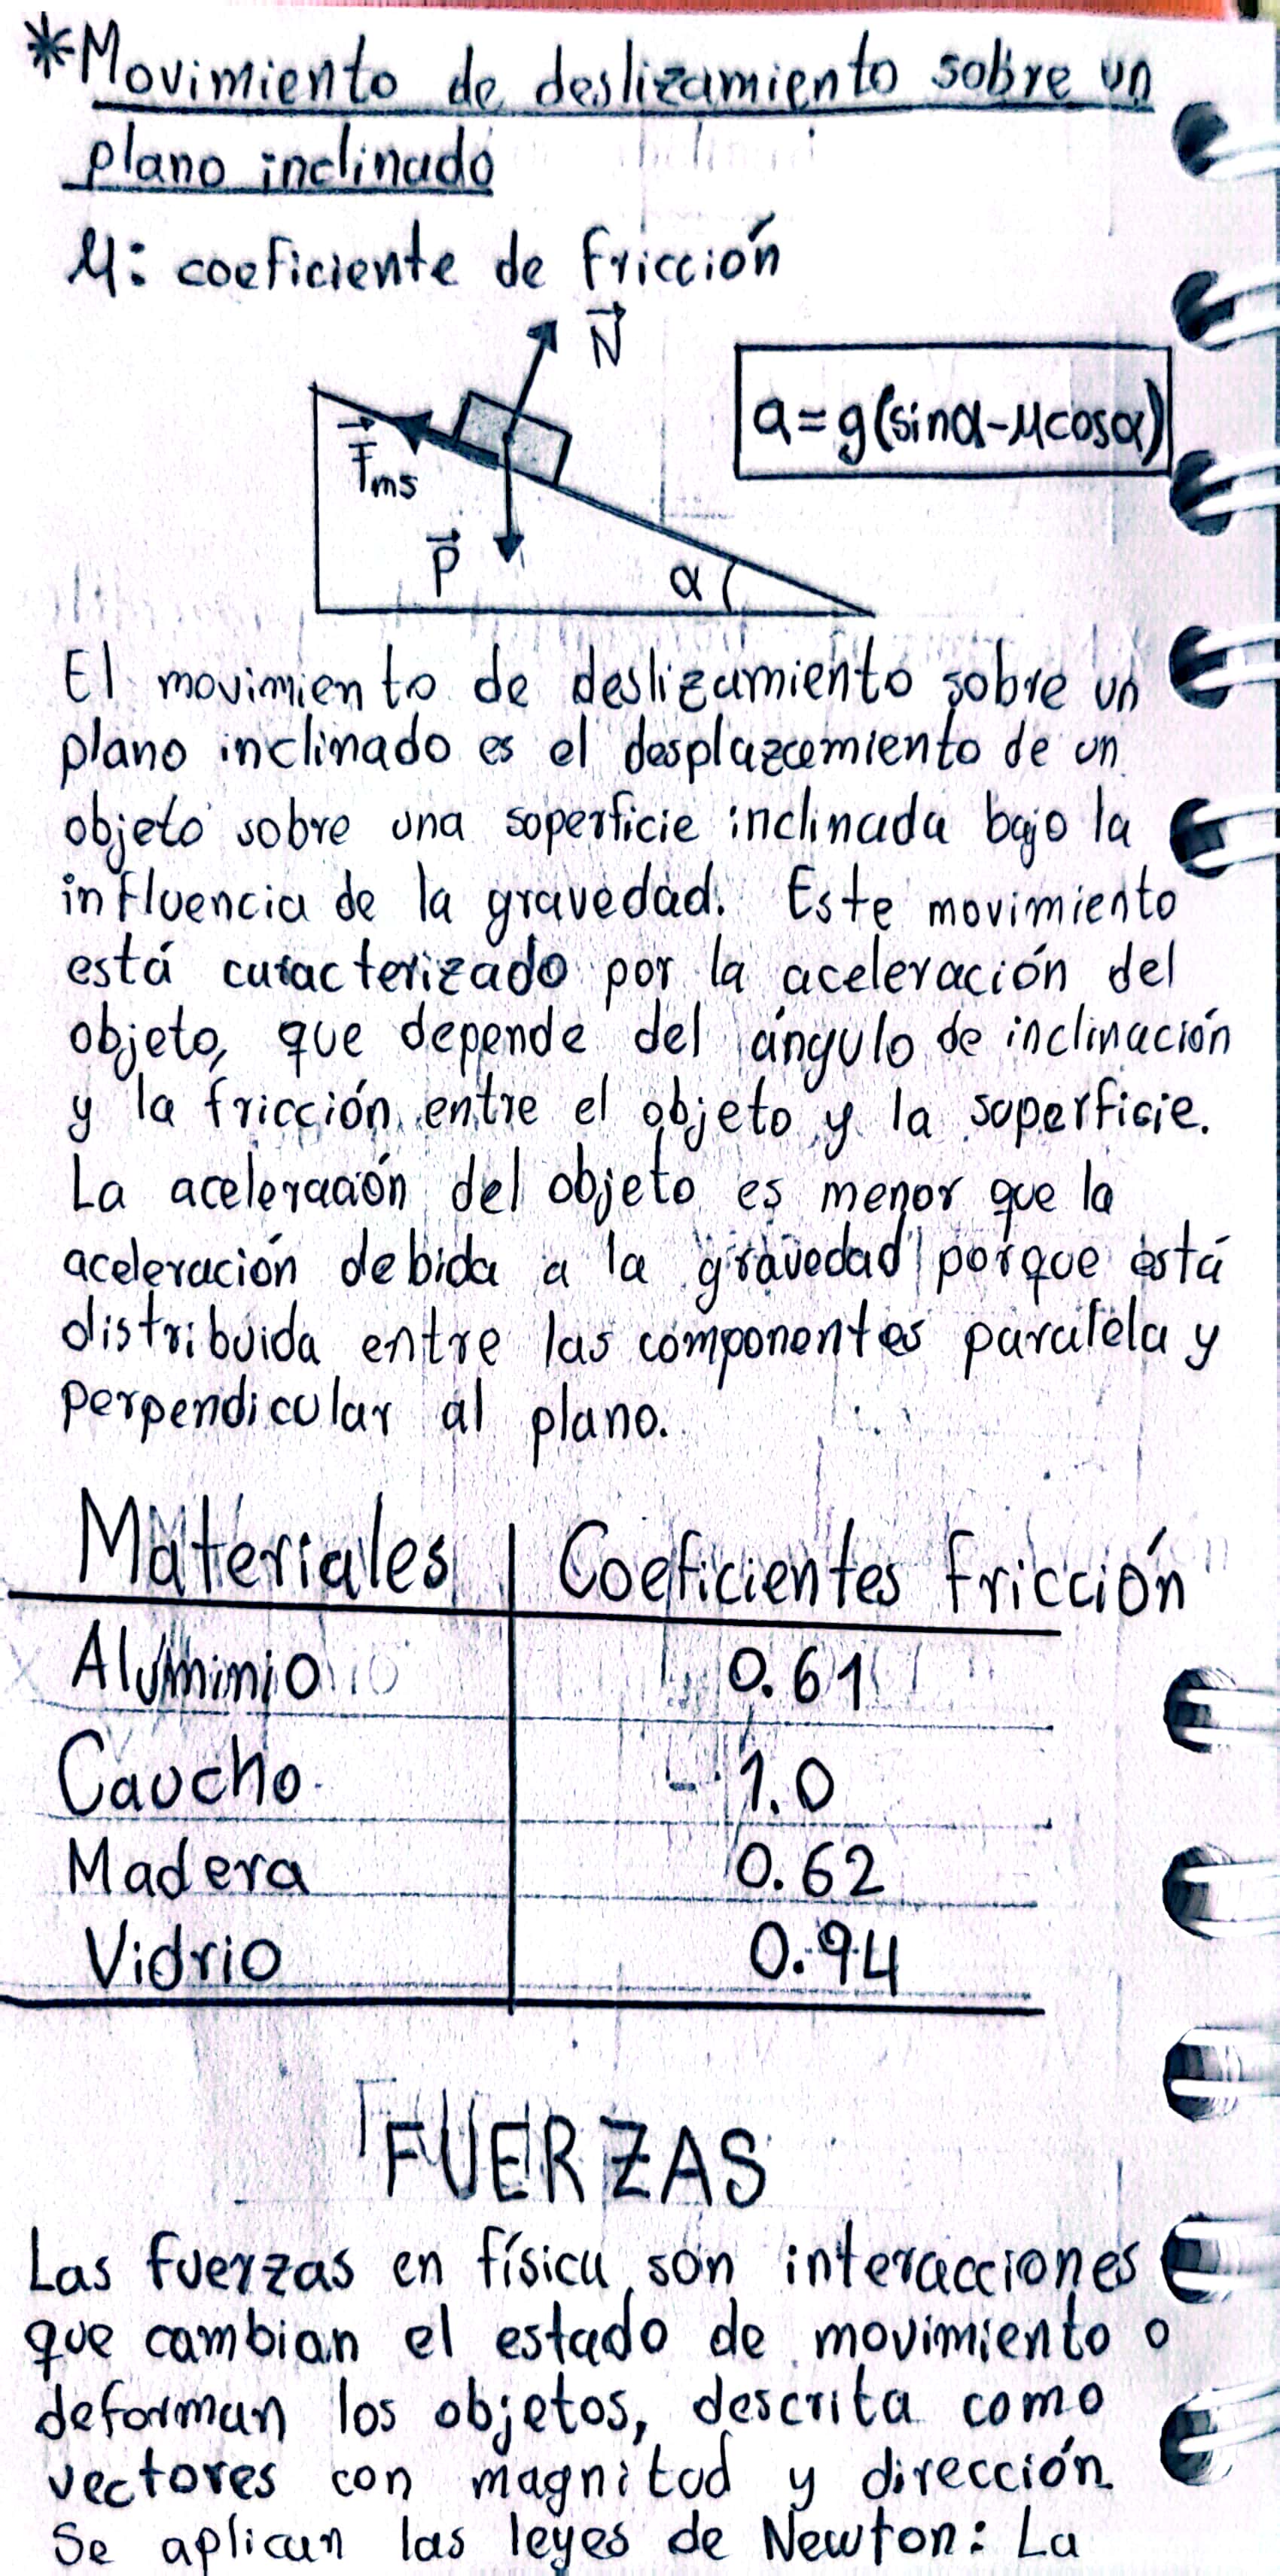 *Movimiento de deslizamiento sobre un
plano inclinado
μ: coeficiente de fricción
N
a=g(sinα-μcosα)
Fms
P
α
El movimiento de deslizamiento sobre un
plano inclinado es el desplazamiento de un
objeto sobre una superficie inclinada bajo la
influencia de la gravedad. Este movimiento
está caracterizado por la aceleración del
objeto, que depende del ángulo de inclinación
y la fricción entre el objeto y la superficie.
La aceleración del objeto es menor que la
aceleración debida a la gravedad porque está
distribuida entre las componentes paralela y
perpendicular al plano.
Materiales | Coeficientes fricción
Aluminio 0.61
Caucho 1.0
Madera 0.62
Vidrio 0.94
FUERZAS
Las fuerzas en física son interacciones
que cambian el estado de movimiento o
deforman los objetos, descrita como
vectores con magnitud y dirección.
Se aplican las leyes de Newton: La